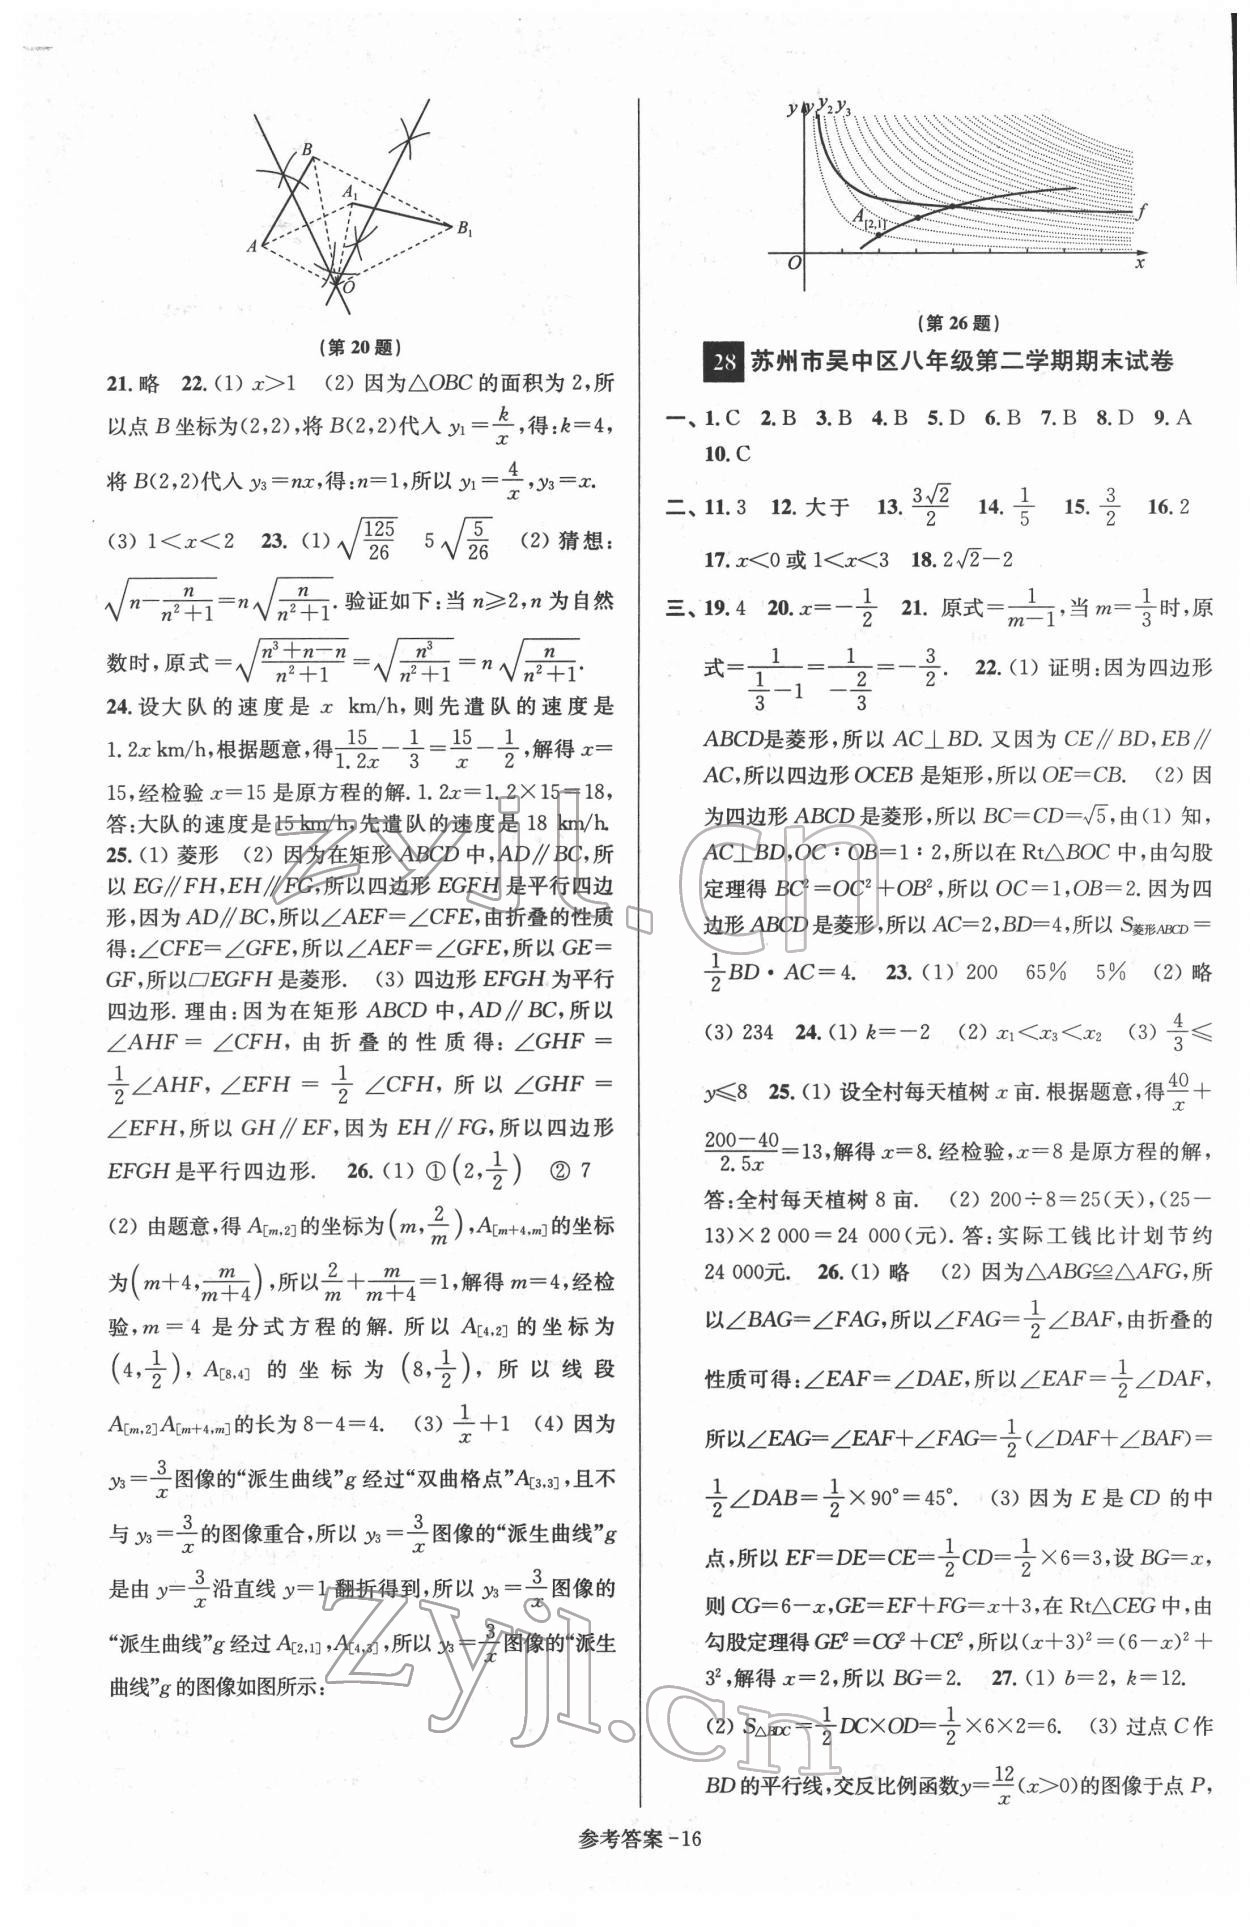 B
A₁
A
B₁
O
(第20题)
21. 略 22. (1) x>1 (2) 因为△OBC的面积为2,所
以点B坐标为(2,2),将B(2,2)代入 y₁=k/x,得:k=4,
将B(2,2)代入 y₃=nx,得:n=1,所以 y₁=4/x,y₃=x.
(3) 1<x<2 23. (1) √(125/26) 5√(5/26) (2) 猜想:
√(n-n/(n²+1))=n√(n/(n²+1)).验证如下:当n≥2,n为自然
数时,原式=√((n³+n-n)/(n²+1))=√(n³/(n²+1))=n√(n/(n²+1)).
24. 设大队的速度是 x km/h,则先遣队的速度是
1.2x km/h,根据题意,得15/1.2x-1/3=15/x-1/2,解得x=
15,经检验x=15是原方程的解.1.2x=1.2×15=18,
答:大队的速度是15 km/h,先遣队的速度是 18 km/h.
25. (1) 菱形 (2) 因为在矩形ABCD中,AD∥BC,所
以EG∥FH,EH∥FG,所以四边形EGFH是平行四边
形,因为AD∥BC,所以∠AEF=∠CFE,由折叠的性质
得:∠CFE=∠GFE,所以∠AEF=∠GFE,所以GE=
GF,所以□EGFH是菱形. (3) 四边形EFGH为平行
四边形.理由:因为在矩形ABCD中,AD∥BC,所以
∠AHF=∠CFH,由折叠的性质得:∠GHF=
1/2∠AHF,∠EFH=1/2∠CFH,所以∠GHF=
∠EFH,所以GH∥EF,因为EH∥FG,所以四边形
EFGH是平行四边形. 26. (1) ①(2,1/2) ② 7
(2) 由题意,得A[m,2]的坐标为(m,2/m),A[m+4,m]的坐标
为(m+4,m/(m+4)),所以2/m+m/(m+4)=1,解得m=4,经检
验,m=4是分式方程的解.所以A[4,2]的坐标为
(4,1/2),A[8,4]的坐标为(8,1/2),所以线段
A[m,2]A[m+4,m]的长为8-4=4. (3) 1/x+1 (4) 因为
y₃=3/x图像的“派生曲线”g经过“双曲格点”A[3,3],且不
与y₃=3/x的图像重合,所以y₃=3/x图像的“派生曲线”g
是由y=3/x沿直线y=1翻折得到,所以y₃=3/x图像的
“派生曲线”g经过A[2,1],A[4,3],所以y₃=3/x图像的“派生
曲线”g的图像如图所示:
y y y₂ y₃
A[2,1]
f
O
x
(第26题)
28 苏州市吴中区八年级第二学期期末试卷
一、1. C 2. B 3. B 4. B 5. D 6. B 7. B 8. D 9. A
10. C
二、11. 3 12. 大于 13. 3√2/2 14. 1/5 15. 3/2 16. 2
17. x<0或1<x<3 18. 2√2-2
三、19. 4 20. x=-1/2 21. 原式=1/(m-1),当m=1/3时,原
式=1/(1/3-1)=1/(-2/3)=-3/2. 22. (1) 证明:因为四边形
ABCD是菱形,所以AC⊥BD.又因为CE∥BD,EB∥
AC,所以四边形OCEB是矩形,所以OE=CB. (2) 因
为四边形ABCD是菱形,所以BC=CD=√5,由(1)知,
AC⊥BD,OC∶OB=1∶2,所以在Rt△BOC中,由勾股
定理得BC²=OC²+OB²,所以OC=1,OB=2.因为四
边形ABCD是菱形,所以AC=2,BD=4,所以S菱形ABCD=
1/2BD·AC=4. 23. (1) 200 65% 5% (2) 略
(3) 234 24. (1) k=-2 (2) x₁<x₃<x₂ (3) 4/3≤
y≤8 25. (1) 设全村每天植树x亩.根据题意,得40/x+
(200-40)/2.5x=13,解得x=8.经检验,x=8是原方程的解,
答:全村每天植树8亩. (2) 200÷8=25(天),(25-
13)×2 000=24 000(元).答:实际工钱比计划节约
24 000元. 26. (1) 略 (2) 因为△ABG≌△AFG,所
以∠BAG=∠FAG,所以∠FAG=1/2∠BAF,由折叠的
性质可得:∠EAF=∠DAE,所以∠EAF=1/2∠DAF,
所以∠EAG=∠EAF+∠FAG=1/2(∠DAF+∠BAF)=
1/2∠DAB=1/2×90°=45°. (3) 因为E是CD的中
点,所以EF=DE=CE=1/2CD=1/2×6=3,设BG=x,
则CG=6-x,GE=EF+FG=x+3,在Rt△CEG中,由
勾股定理得GE²=CG²+CE²,所以(x+3)²=(6-x)²+
3²,解得x=2,所以BG=2. 27. (1) b=2, k=12.
(2) S△BDC=1/2DC×OD=1/2×6×2=6. (3) 过点C作
BD的平行线,交反比例函数y=12/x(x>0)的图像于点P,
参考答案-16
zyjl.cn
zyjl.cn